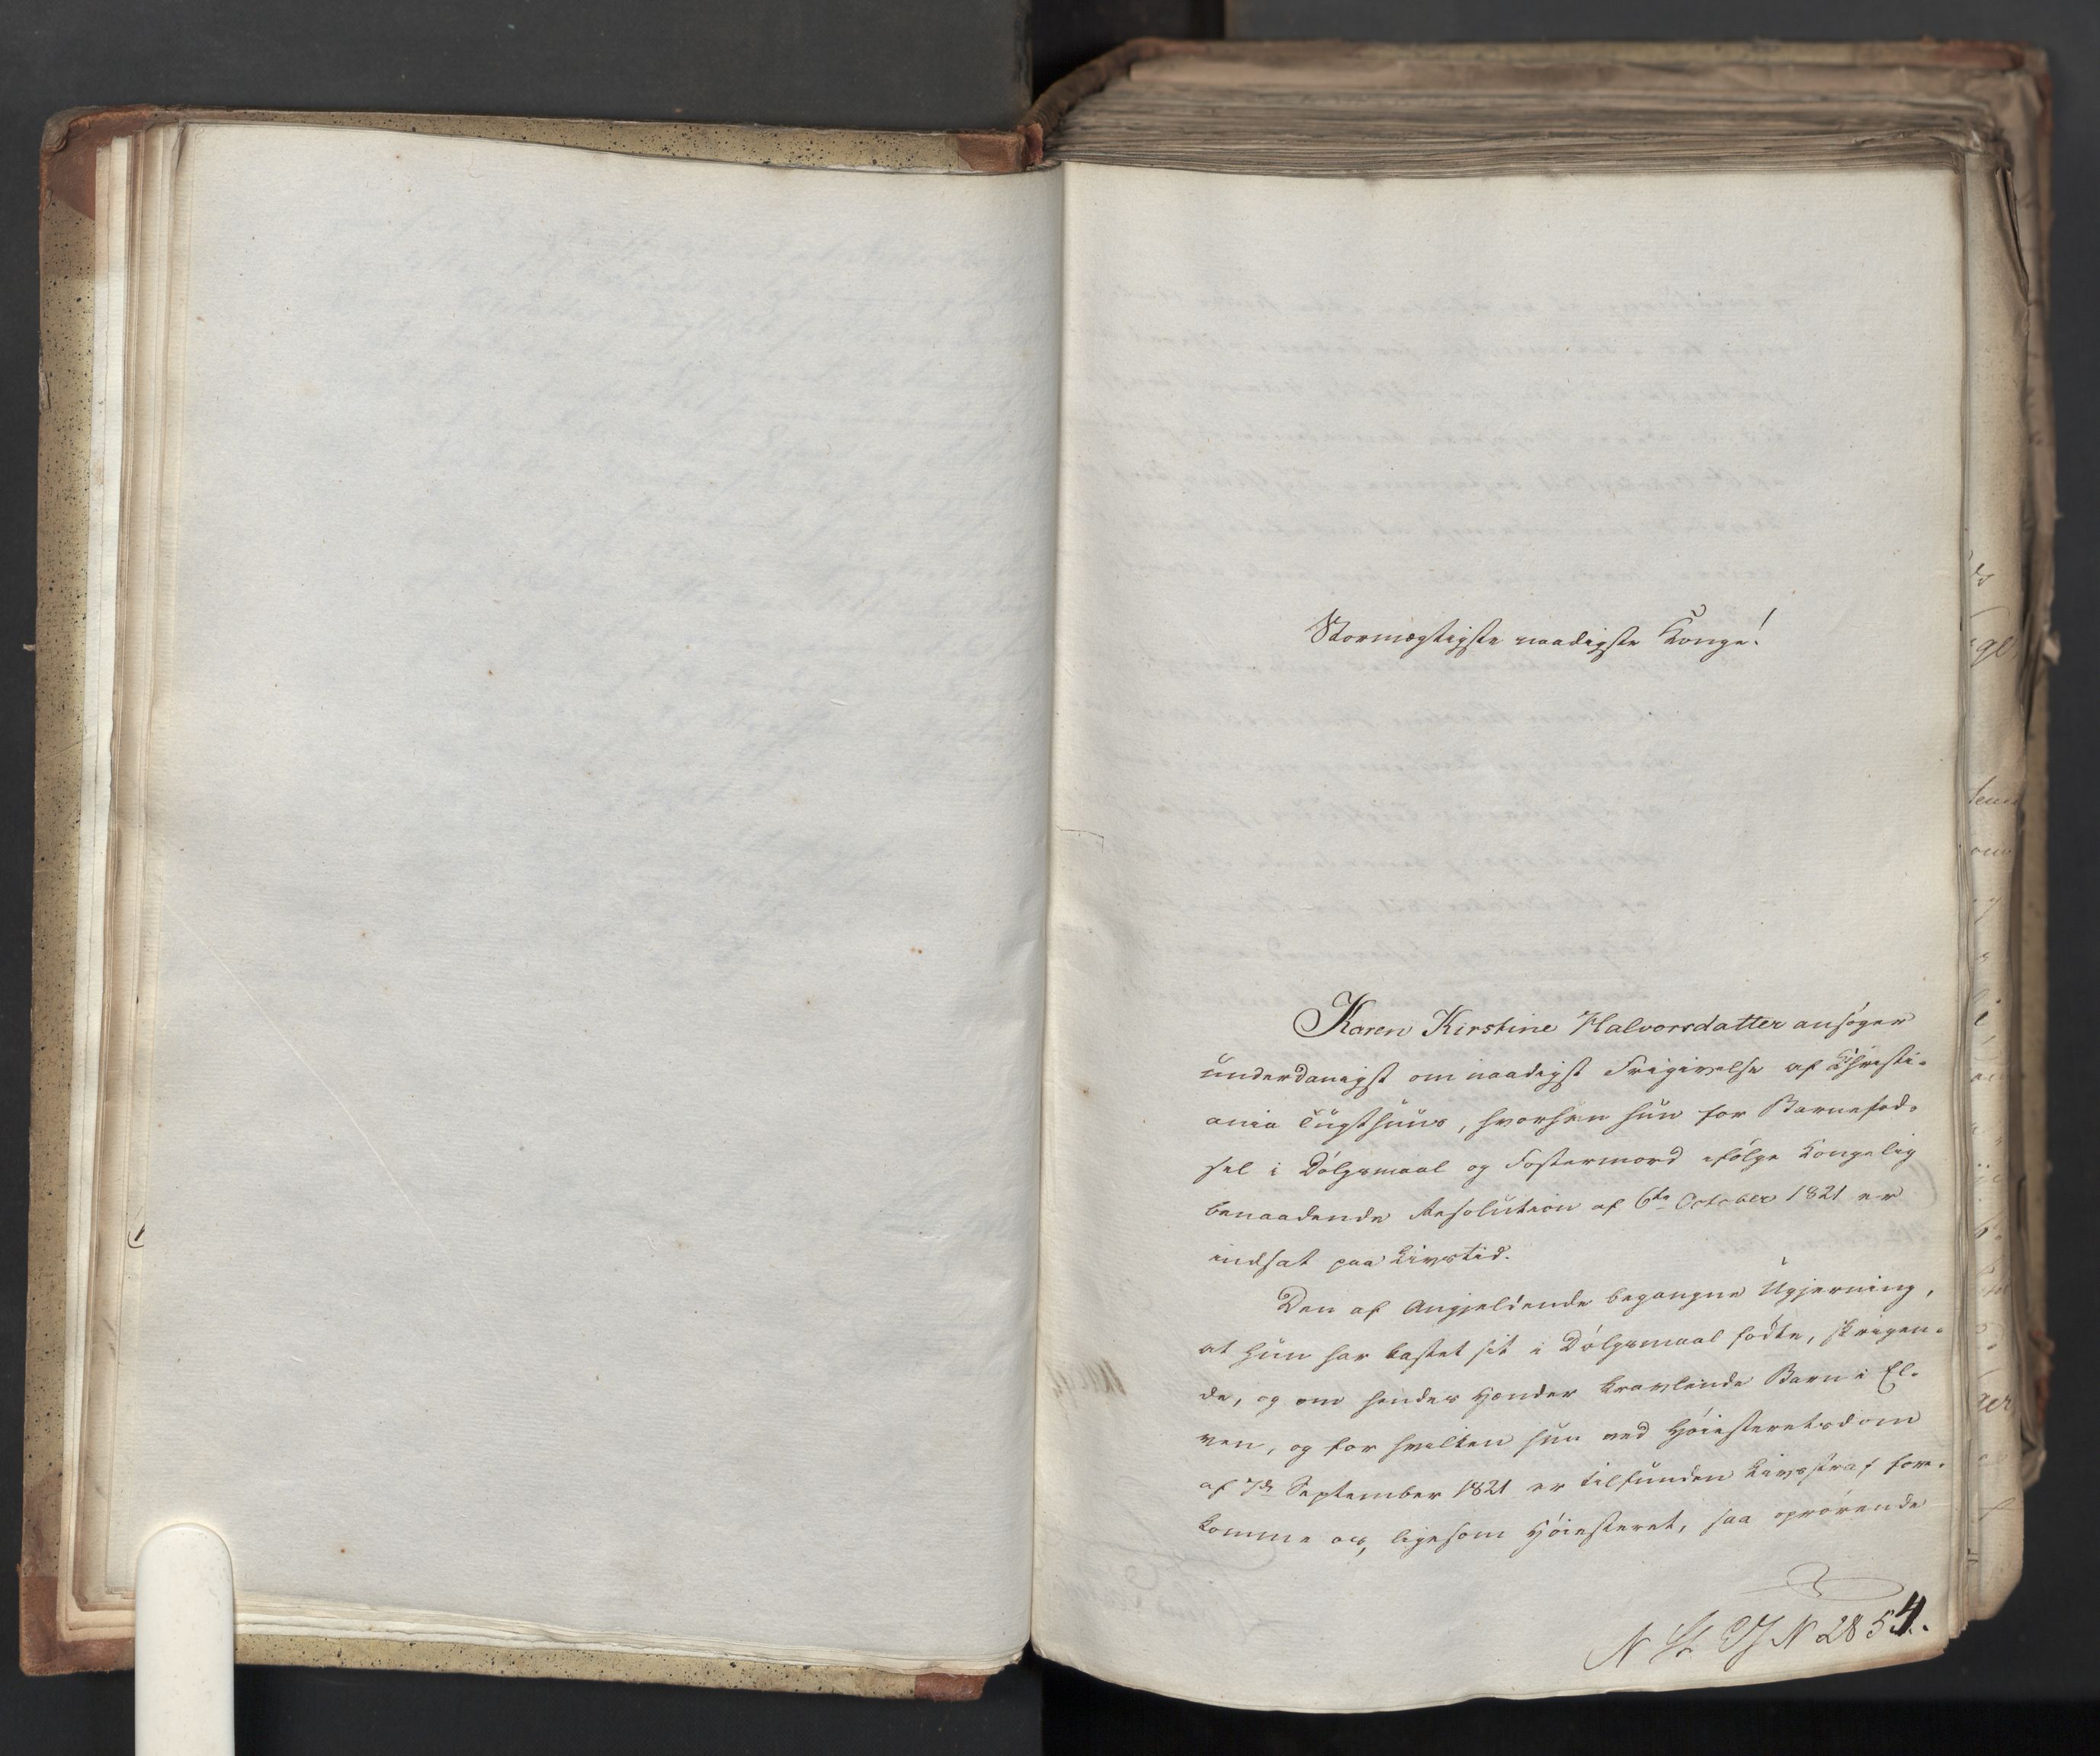 Stormægtigste naadigste Konge!
Karen Kirstine Halvorsdatter ansøger
underdanigst om naadigst Frigivelse af Christi-
ania Tugthuus, hvorhen hun for Barnefød-
sel i Dølgsmaal og Fostermord ifølge Kongelig
benaadende Resolution af 6te October 1821 er
indsat paa Livstid.
Den af Angjeldende begangne Ugjerning,
at hun har kastet sit i Dølgsmaal fødte, skrigen-
de, og om hendes Hænder kravlende Barn i El-
ven, og for hvilken hun ved Høiesteretsdom
af 7de September 1821 er tilfunden Livsstraf fore-
komme os, ligesom Høiesteret, saa oprørende
N St J N 2854.